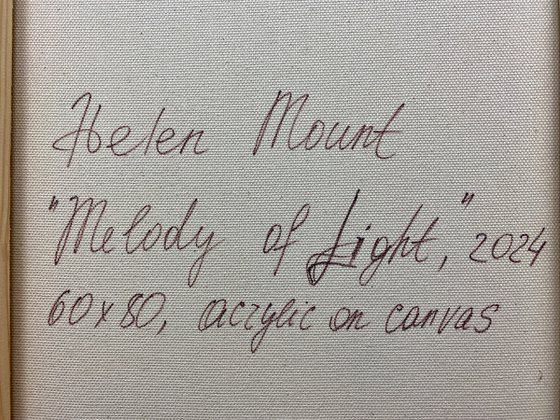 Helen Mount
"Melody of Light," 2024
60x80, acrylic on canvas